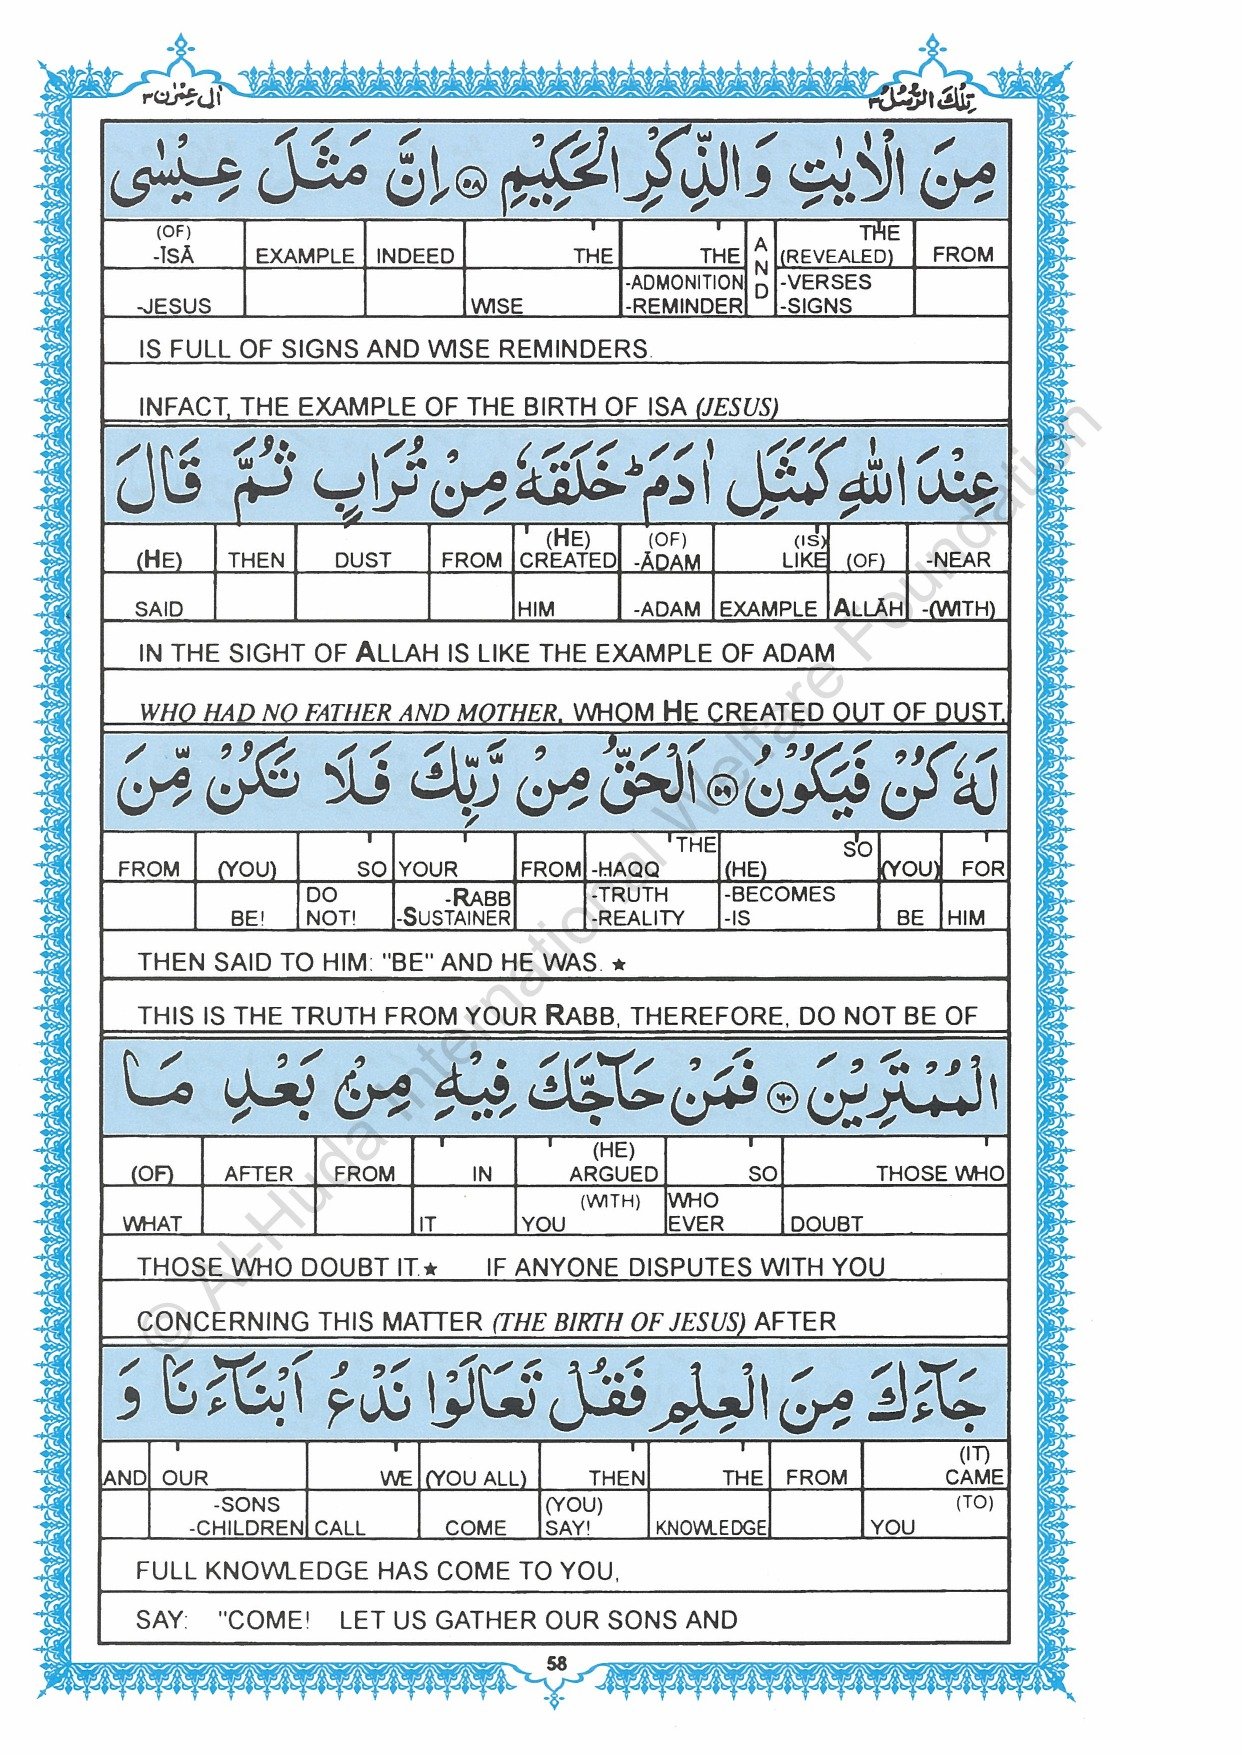 اٰل عِمْرٰن ٣
تِلْكَ الرُّسُلُ ٣
مِنَ الْاٰيٰتِ وَالذِّكْرِ الْحَكِيْمِ ۝٥٨ اِنَّ مَثَلَ عِيْسٰى
(OF) THE
-ĪSĀ EXAMPLE INDEED THE THE AND (REVEALED) FROM
-ADMONITION -VERSES
-JESUS WISE -REMINDER -SIGNS
IS FULL OF SIGNS AND WISE REMINDERS.
INFACT, THE EXAMPLE OF THE BIRTH OF ISA (JESUS)
عِنْدَ اللّٰهِ كَمَثَلِ اٰدَمَ ؕ خَلَقَهٗ مِنْ تُرَابٍ ثُمَّ قَالَ
(HE) (OF) (IS)
(HE) THEN DUST FROM CREATED -ĀDAM LIKE (OF) -NEAR
SAID HIM -ADAM EXAMPLE ALLĀH -(WITH)
IN THE SIGHT OF ALLAH IS LIKE THE EXAMPLE OF ADAM
WHO HAD NO FATHER AND MOTHER, WHOM HE CREATED OUT OF DUST,
لَهٗ كُنْ فَيَكُوْنُ ۝٥٩ اَلْحَقُّ مِنْ رَّبِّكَ فَلَا تَكُنْ مِّنَ
THE SO
FROM (YOU) SO YOUR FROM -HAQQ (HE) (YOU) FOR
DO -RABB -TRUTH -BECOMES
BE! NOT! -SUSTAINER -REALITY -IS BE HIM
THEN SAID TO HIM: "BE" AND HE WAS. ★
THIS IS THE TRUTH FROM YOUR RABB, THEREFORE, DO NOT BE OF
الْمُمْتَرِيْنَ ۝٦٠ فَمَنْ حَآجَّكَ فِيْهِ مِنْۢ بَعْدِ مَا
(HE)
(OF) AFTER FROM IN ARGUED SO THOSE WHO
(WITH) WHO
WHAT IT YOU EVER DOUBT
THOSE WHO DOUBT IT.★ IF ANYONE DISPUTES WITH YOU
CONCERNING THIS MATTER (THE BIRTH OF JESUS) AFTER
جَآءَكَ مِنَ الْعِلْمِ فَقُلْ تَعَالَوْا نَدْعُ اَبْنَآءَنَا وَ
(IT)
AND OUR WE (YOU ALL) THEN THE FROM CAME
-SONS (YOU) (TO)
-CHILDREN CALL COME SAY! KNOWLEDGE YOU
FULL KNOWLEDGE HAS COME TO YOU,
SAY: "COME! LET US GATHER OUR SONS AND
58
© Al-Huda International Welfare Foundation